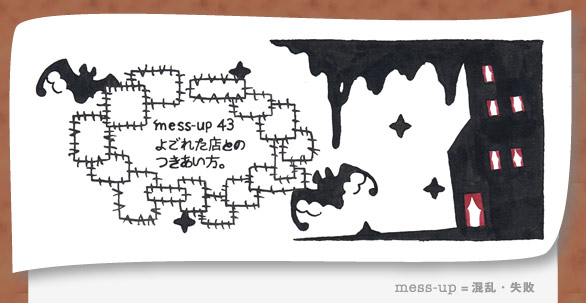 mess-up 43
よごれた店との
つきあい方。
mess-up = 混乱・失敗